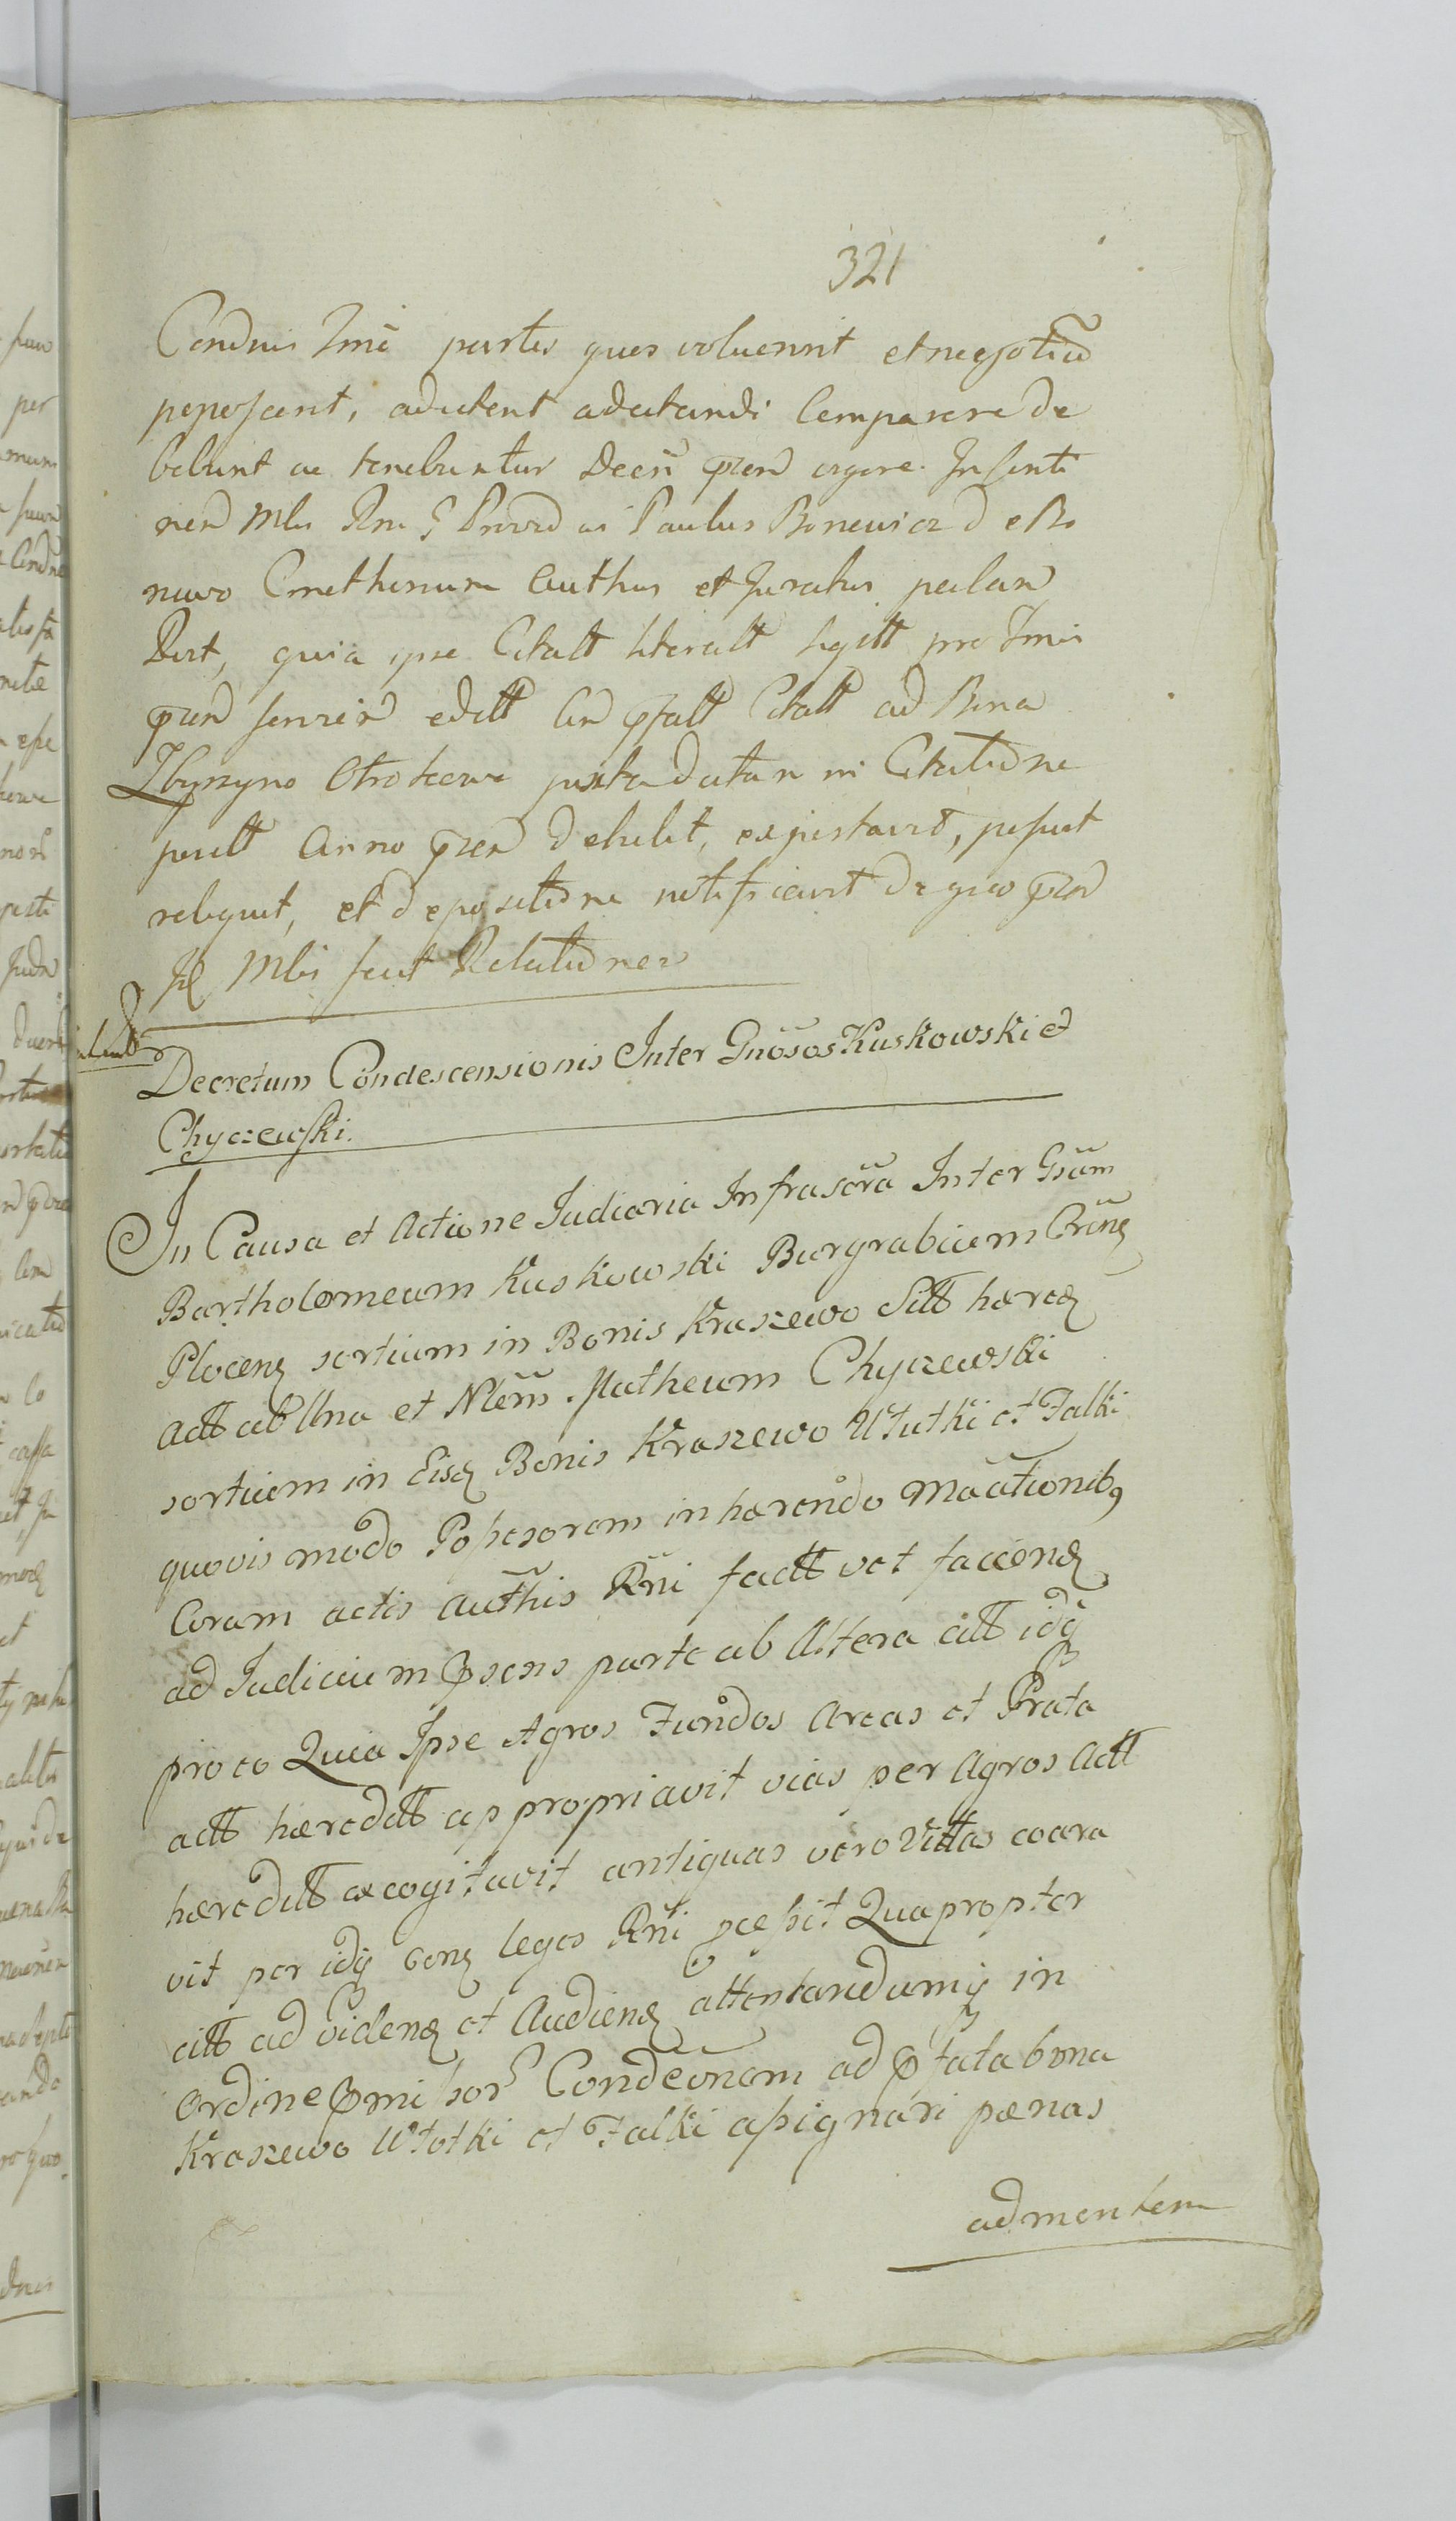 321
Condnis Imē partes ques voluerint et negotiū
peposcerit, adcitent adcitandi Comparere de
bebunt ac tenebuntur Decrī pren̄ vigore. In conti
nen̄ Mlis Rni G Provid us Paulus Boniewicz de Bo
niewo Cmethonum Authus et Juratus palam
Rect, quia ipse Citatt literatt sigitt pro Imis
pren̄ servien̄ editt Con pfatt Citatt ad Bona
Zbyszyno Otrokowe juxta Datam in Citatione
positt Anno pren̄ Debebit, exportavit, posuit
reliquit, et de positione notificavit de quo pren̄
se Mlis fecit Relationem
Decretum Condescensionis Inter Gnōsos Kuskowski et
Chyczewski.
In Causa et Actione Judiaria Infrascrā Inter Gsūm
Bartholomeum Kuskowski Burgrabium Crinē
Plocens sortium in Bonis Kraszewo Sitt haered
Act ab Una et Nlēm Matheum Chyczewski
sortium in Eisd Bonis Kraszewo Wtutki et Falki
quovis modo Possesorem inhærendo Maātionibq
Coram actis Authis Rni factt vet faciend
ad Judicium Psens parte ab Altera citt idq
pro eo Quia Ipse Agros Fundos Areas et Prata
actt hæreditt appropriavit vias per Agros Act
hæreditt excogitavit antiquas vero Vittas coara
vit per idq conz leges Rni pcessit Quapropter
citt ad Videnz et Audienz attentandumq in
Ordine Pmissor Condecōnem ad Pfata bona
Kraszewo Wtotki et Falki assignari pænas
ad mentem